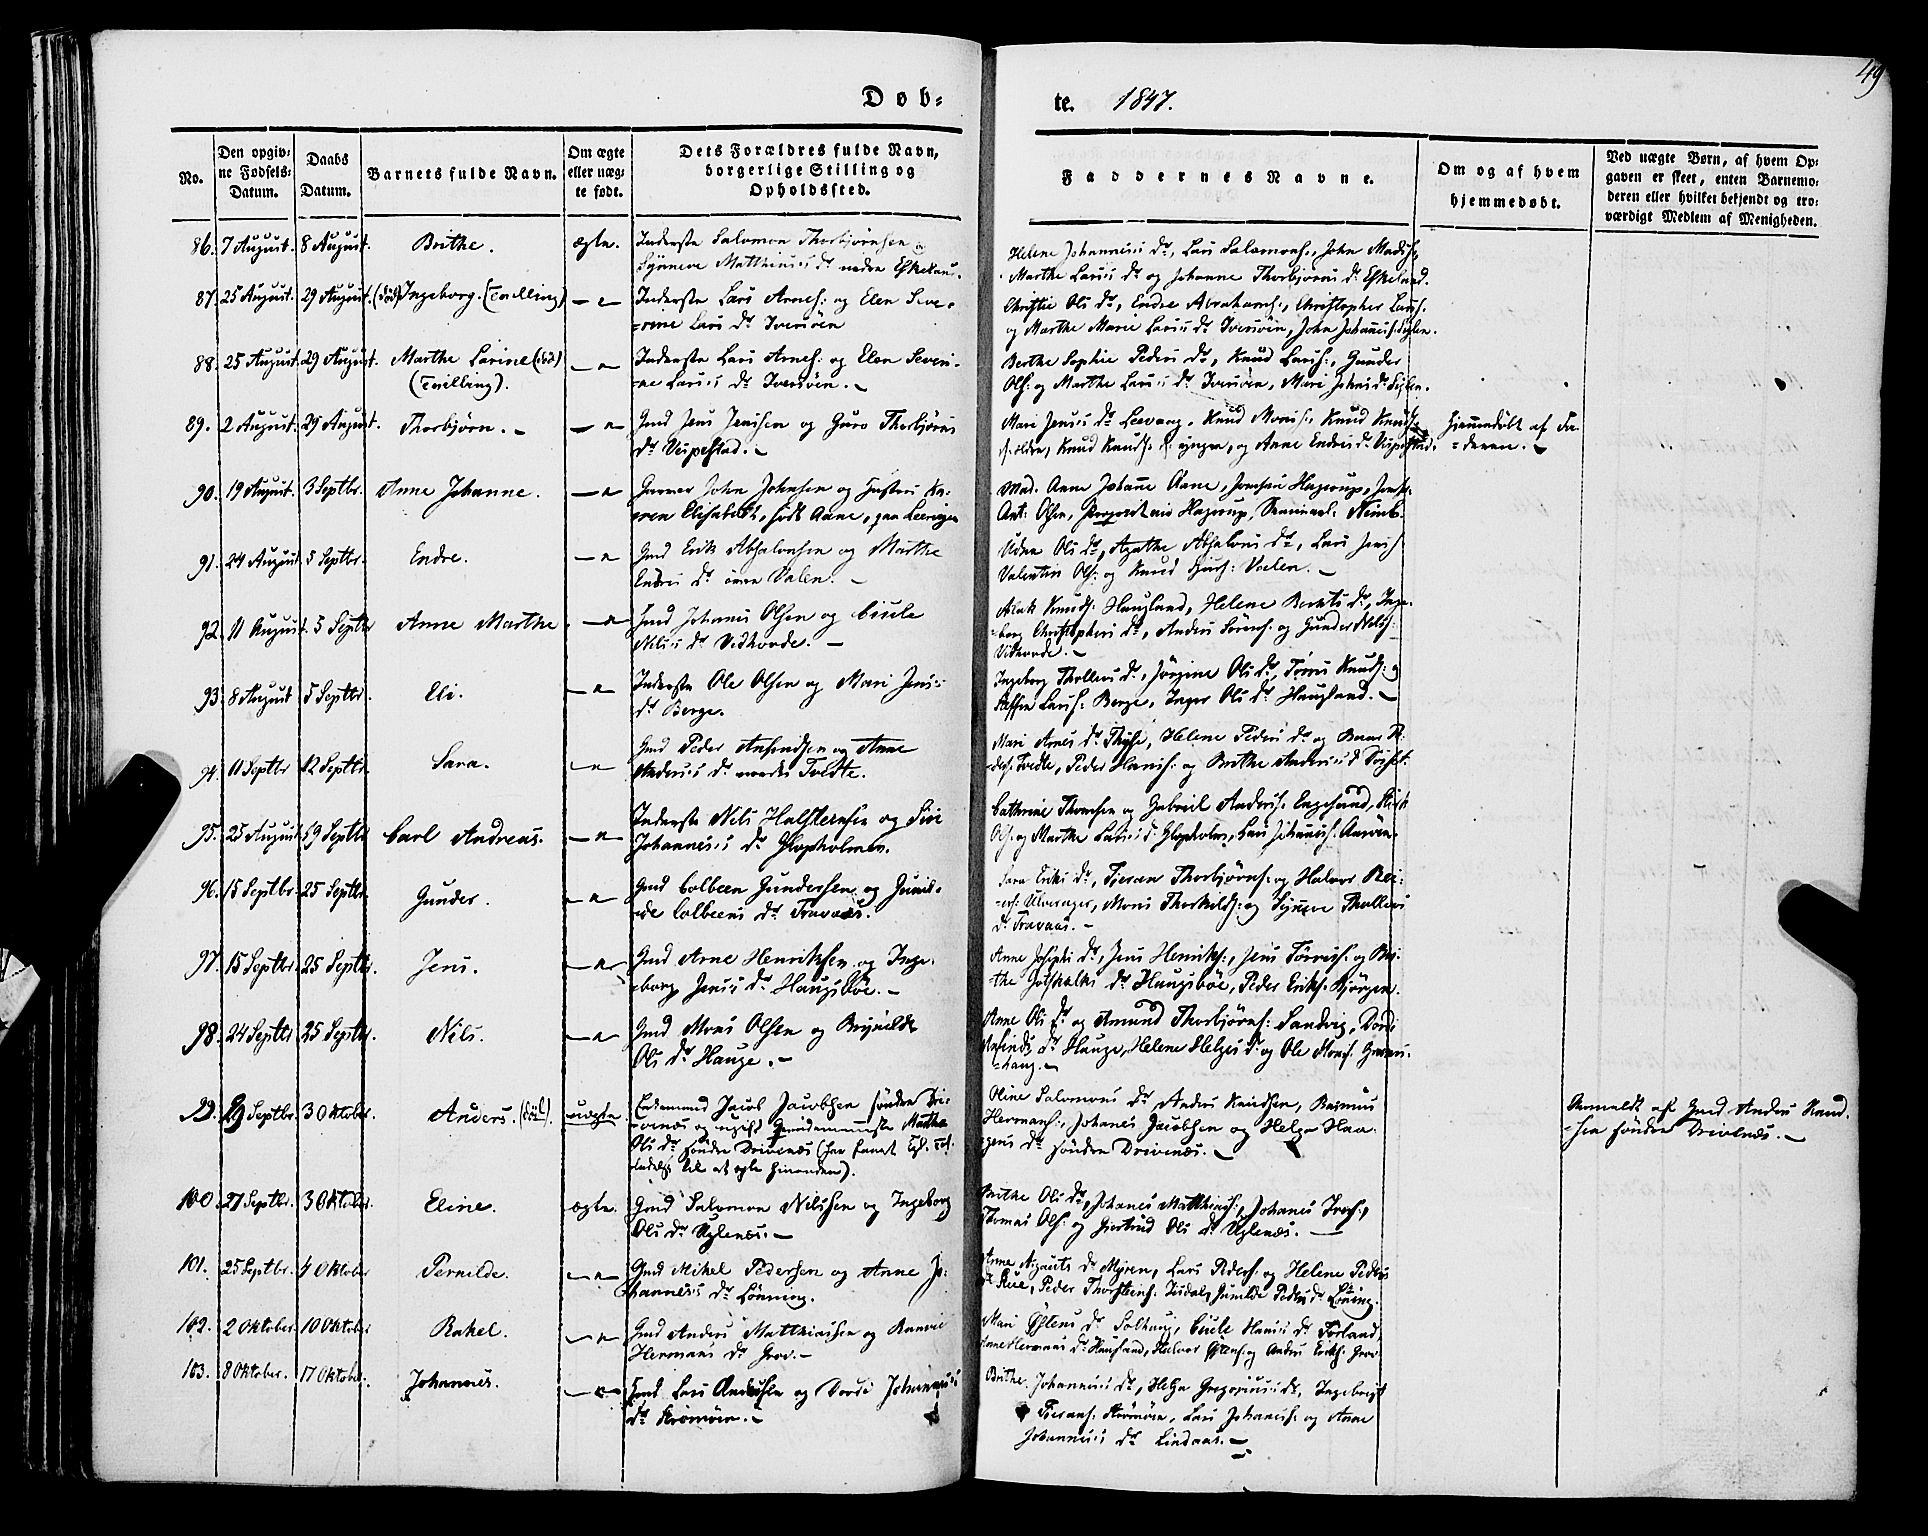 49
Døb-
te. 1847.
No.
Den opgiv-
ne Fødsels-
Datum.
Daabs
Datum.
Barnets fulde Navn.
Om ægte
eller uæg-
te født.
Dets Forældres fulde Navn,
borgerlige Stilling og
Opholdssted.
Faddernes Navne.
Om og af hvem
hjemmedøbt.
Ved uægte Børn, af hvem Op-
gaven er skeet, enten Barnemo-
deren eller hvilket bekjendt og tro-
værdigt Medlem af Menigheden.
86. 7 August. 8 August. Brithe. ægte. Inderste Salomon Thorbjørnsen
Synneve Matthiasis dr nedre Eskeland.
Helene Johannesis dr, Lars Salomons., John Mads.,
Marthe Larsis dr og Johanne Thorbjørns dr Eskeland.
87. 25 August. 29 August. (død) Ingeborg. (Tvilling) — " — Inderste Lars Arnes: og Elen Seve-
-rine Lars dr Iversøen
Christie Ols dr, Endre Abrahams., Christopher Lars:
og Marthe Marie Larsis dr Iversøen, John Johannes:
88. 25 August. 29 August. Marthe Larine (død)
(Tvilling). — " — Inderste Lars Arnes: og Elen Severi-
-ne Larsis dr Iversøen. —
Berthe Sophie Peders dr, Knud Lars:, Gunder
Ols: og Marthe Larsis dr Iversøen, Mari Johns dr
89. 2 August. 29 August. Thorbjørn. — — " — Gmd Jens Jensen og Guro Thorbjørns
dr Veipestad. —
Mari Jensis dr Leevaag, Knud Mons: Knud Knuds:
d: ældre, Knud Knuds: d: yngre, og Anne Endres dr Veipestad.
Hjemmedøbt af Fa-
-deren. —
90. 19 August. 3 Septbr. Anne Johanne. — " — John Johnsen og Hustru Ka-
ren Elisabeth, født Aane, paa
Mad. Anne Johanne Aane, Jomfru Hagerup,
Ant: Olsen, Hagerup,
91. 24 August 5 Septbr. Endre. — " — Gmd Erik Absalonsen og Marthe
Endres dr øvre Valen. —
Ols dr, Agathe Absalons dr, Lars Jens:
Valentin Ols: og Knud Valen. —
92. 11 August. 5 Septbr Anne Marthe — " — Gmd Johannes Olsen og Cicele
Nilsis dr Vedhovde. —
Aslak Knuds: Haugland, Helene Berents dr, Inge-
-borg Christophers dr, Anders Sørens: og Gunder Nils:
Vedhovde. —
93. 8 August 5 Septbr. Eli. — " — Inderste Ole Olsen og Mari Jens-
dr Berge.
Ingeborg Thollevs dr, Jørgine Ols dr, Tørres Knuds: og
Steffen Lars: Berge, Inger Ols dr Haugland. —
94. 11 Septbr 12 Septbr. Sara. — " — Gmd Peder og Anne
Andersis dr nordre Tvedte.
Mari Arnes dr, Helene Peders dr og
Tvedte, Peder Hans: og Brithe Andersis d
95. 25 August 19 Septbr Carl Andreas. — " — Inderste Nils Halsteensen og Siri
Johannesis dr Glopholmen.
Cathrine Thomsen og Gabriel Anders: Engesund,
Ols: og Marthe Larsis dr Glopholmen, Lars Johannes:
96. 15 Septbr. 25 Septbr. Gunder. — " — Gmd Colbeen Gundersen og Gunil-
-de Colbeens dr Fravaas.
Sara Eriks dr, Thorbjørns: og Halvor
Ulverager, Mons Thorkilds: og Synneve Thollevs
dr Fravaas. —
97. 15 Septbr. 25 Septbr. Jens. — " — Gmd Arne Henriksen og Inge-
-borg Jensis dr Haugsbøe. —
Anne Josephs dr, Jens Henriks:, Jens Tørres: og Bri-
-the Gotskalks dr Haugsbøe, Peder Eriks: Bjørgen.
98. 24 Septbr 25 Septbr. Nils. — " — Gmd Mons Olsen og Brynilde
Ols dr Hauge. —
Anne Ols dr og Amund Thorbjørns: Sandvig, Dordi
dr Hauge, Helene Helges dr og Ole Mons:
99. 29 Septbr. 3 Oktober. Anders. (død). uægte. Enkemand Jacob Jacobsen søndre Dri-
-venæs og ugift Marthe
Ols dr søndre Drivenæs
Oline Salomons dr Anders Knudsen, Rasmus
Hermans:, Johannes Jacobsen og Helga Haa-
-gens dr søndre Drivenæs. —
Anmeldt af Gmd Anders Knud-
-sen søndre Drivenæs. —
100. 27 Septbr. 3 Oktober. Eline. ægte. Gmd Salomon Nilssen og Ingeborg
Ols dr Uglenæs. —
Brithe Ols dr, Johannes Matthias:, Johannes Ivers:,
Thomas Ols: og Giertrud Ols dr Uglenæs. —
101. 25 Septbr. 4 Oktober Pernilde. — " — Gmd Mikel Pedersen og Anne Jo-
hannesis dr Lønning.
Anne dr Myren, Lars Peders: og Helene Peders
dr, Peder Thorsteins: Tisdal, Gunilde Peders dr Lønning.
102. 2 Oktober. 10 Oktober Rakel. — " — Gmd Anders Matthiassen og Ranvei
Hermans dr Grov. —
Mari Østens dr Solhaug, Cicele Hans dr Førland,
Anne Hermans dr, Halvor Østens: og Anders Eriks: Grov
103. 8 Oktober. 17 Oktober. Johannes. — " — Gmd Lars Andersen og Dordi Johannesis
dr Strømøen. —
Brithe Johannesis dr, Helga Gregoriusis dr, Ingebrigt
Strømøen, Lars Johannes: og Anne
Johannesis dr Lindaas. —